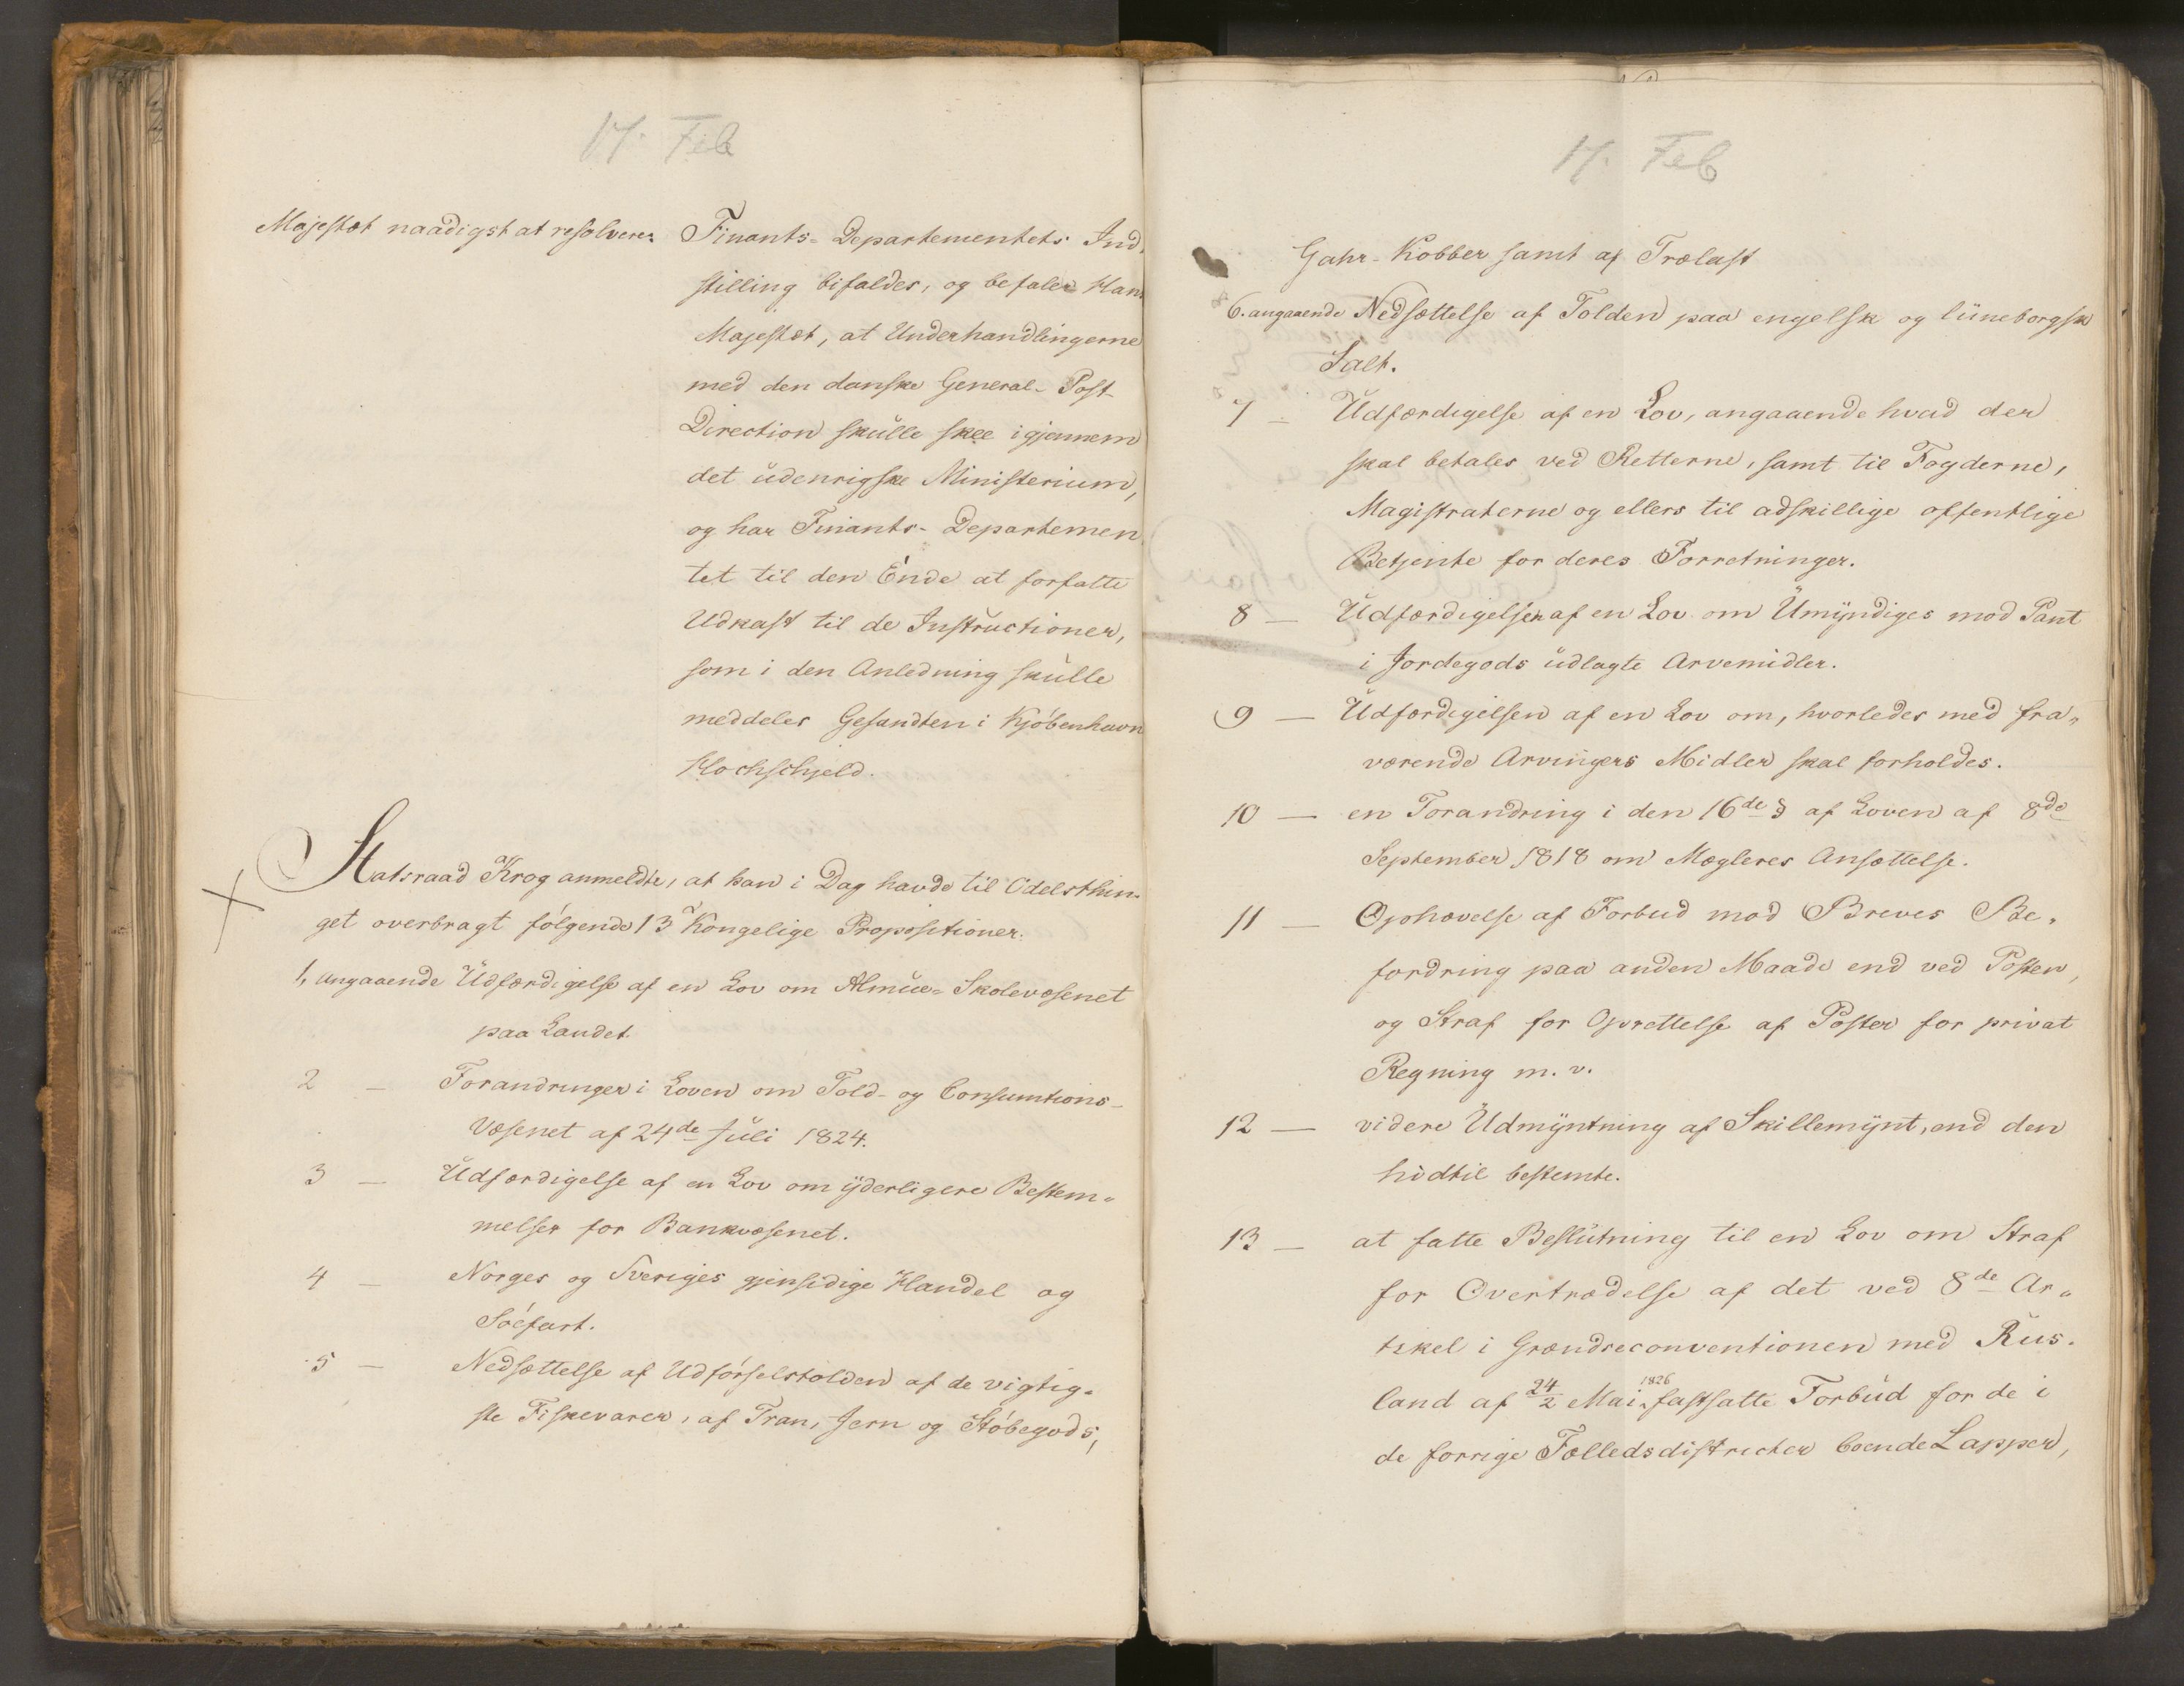 17. Feb
Majestæt naadigst at resolvere:
Finants-Departementets Ind,
stilling bifaldes, og befaler Hans
Majestæt, at Underhandlingerne
med den danske General-Post-
Direction skulle skee igjennem
det udenrigske Ministerium,
og har Finants-Departemen
tet til den Ende at forfatte
Udkast til de Instructioner,
som i den Anledning skulle
meddeles Gesandten i Kjöbenhavn
Hochschjeld.
Statsraad Krog anmeldte, at han i Dag havde til Odelsthin-
get overbragt fölgende 13 Kongelige Propositioner:
1, angaaende Udfærdigelse af en Lov om Almue-Skolevæsenet
paa Landet.
2 — Forandringer i Loven om Told- og Consumtions-
Væsenet af 24de Juli 1824.
3 — Udfærdigelse af en Lov om yderligere Bestem-
melser for Bankvæsenet.
4 — Norges og Sveriges gjensidige Handel og
Söefart.
5 — Nedsættelse af Udförselstolden af de vigtig-
ste Fiskevarer, af Tran, Jern og Stöbegods,
17. Feb
Gahr-Kobber samt af Trælast
6. angaaende Nedsættelse af Tolden paa engelsk og lüneborgsk
Salt.
7 — Udfærdigelse af en Lov, angaaende hvad der
skal betales ved Retterne, samt til Fogderne,
Magistraterne og ellers til adskillige offentlige
Betjente for deres Forretninger.
8 — Udfærdigelsen af en Lov om Umyndiges mod Pant
i Jordegods udlagte Arvemidler.
9 — Udfærdigelsen af en Lov om, hvorledes med fra„
værende Arvingers Midler skal forholdes.
10 — en Forandring i den 16de § af Loven af 8de
September 1818 om Mægleres Ansættelse.
11 — Ophævelse af Forbud mod Breves Be„
fordring paa anden Maade end ved Posten,
og Straf for Oprettelse af Poster for privat
Regning m. v.
12 — videre Udmyntning af Skillemynt, end den
hidtil bestemte.
13 — at fatte Beslutning til en Lov om Straf
for Overtrædelse af det ved 8de Ar„
tikel i Grændseconventionen med Rus-
land af 24/2 Mai 1826 fastsatte Forbud for de i
de forrige Fælledsdistricter boende Lapper,